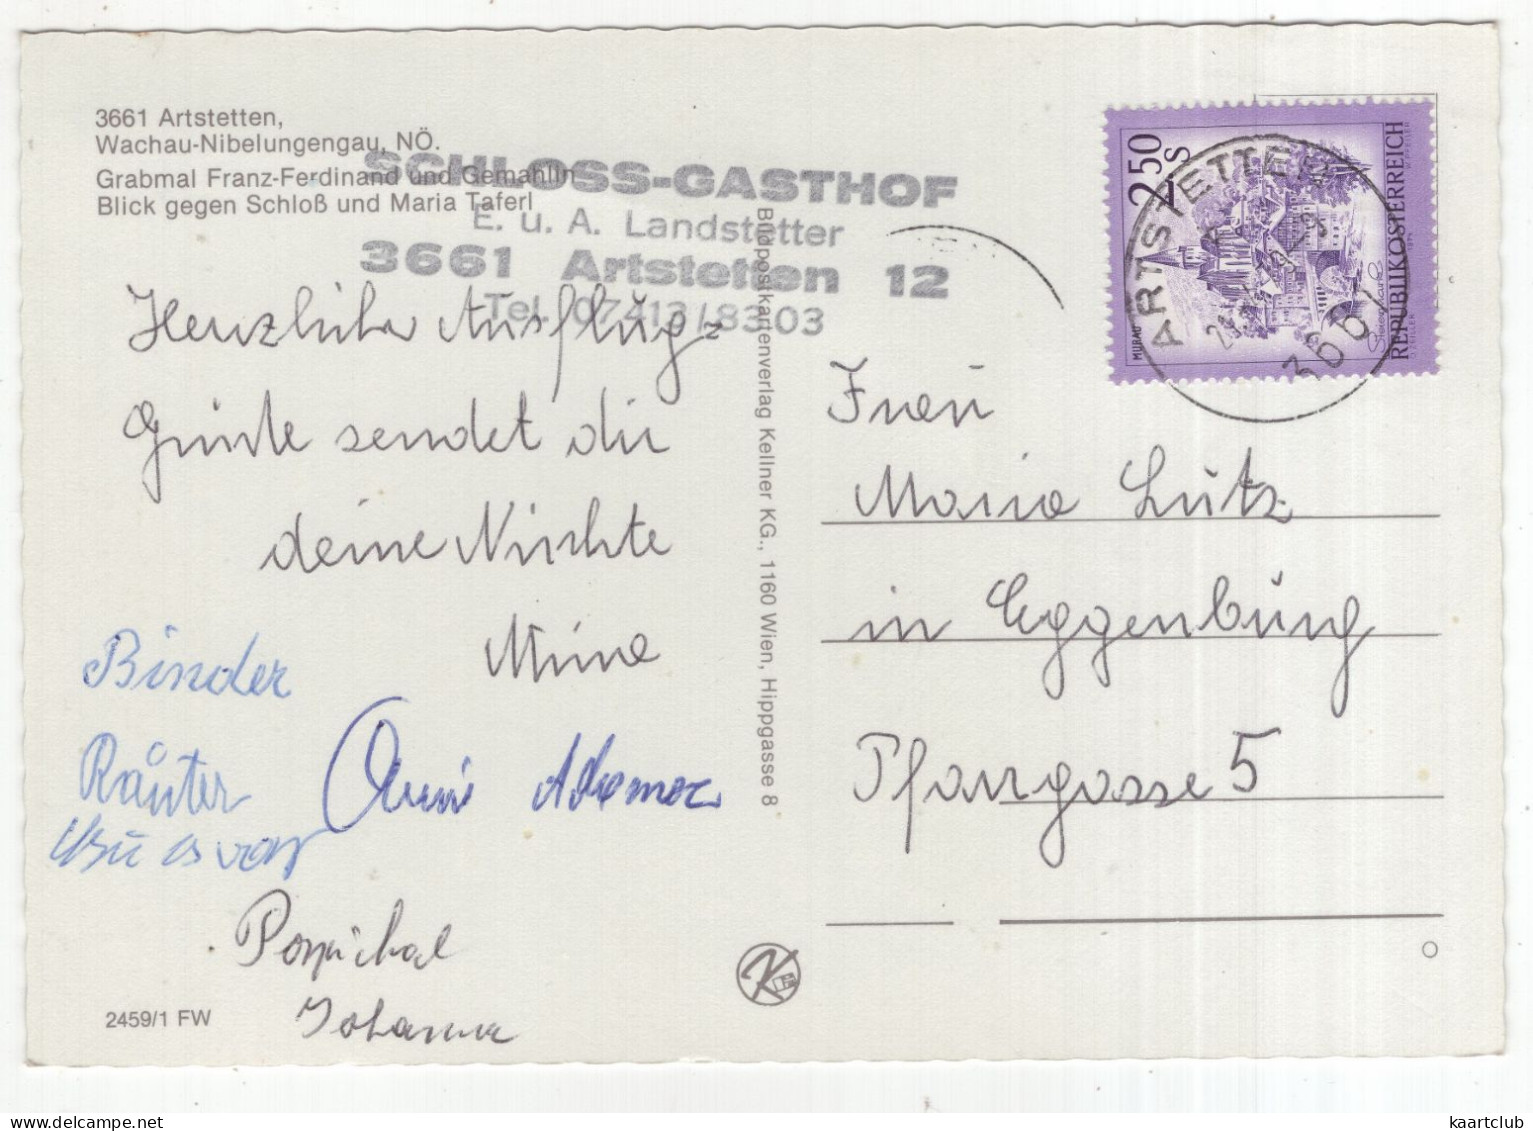 3661 Artstetten,
Wachau-Nibelungengau, NÖ.
Grabmal Franz-Ferdinand und Gemahlin
Blick gegen Schloß und Maria Taferl
SCHLOSS-GASTHOF
E. u. A. Landstetter
3661 Artstetten 12
Tel. 07413/8303
Herzliche Ausflugs-
Grüße sendet dir
deine Nichte
Mina
Binder
Räuter
Anni
Pospichal
Johanna
2459/1 FW
Bildpostkartenverlag Kellner KG., 1160 Wien, Hippgasse 8
K
2.50
S
MURAU
REPUBLIK ÖSTERREICH
ARTSTETTEN
3661
Frau
Maria Lutz
in Eggenburg
Pfarrgasse 5
kaartclub